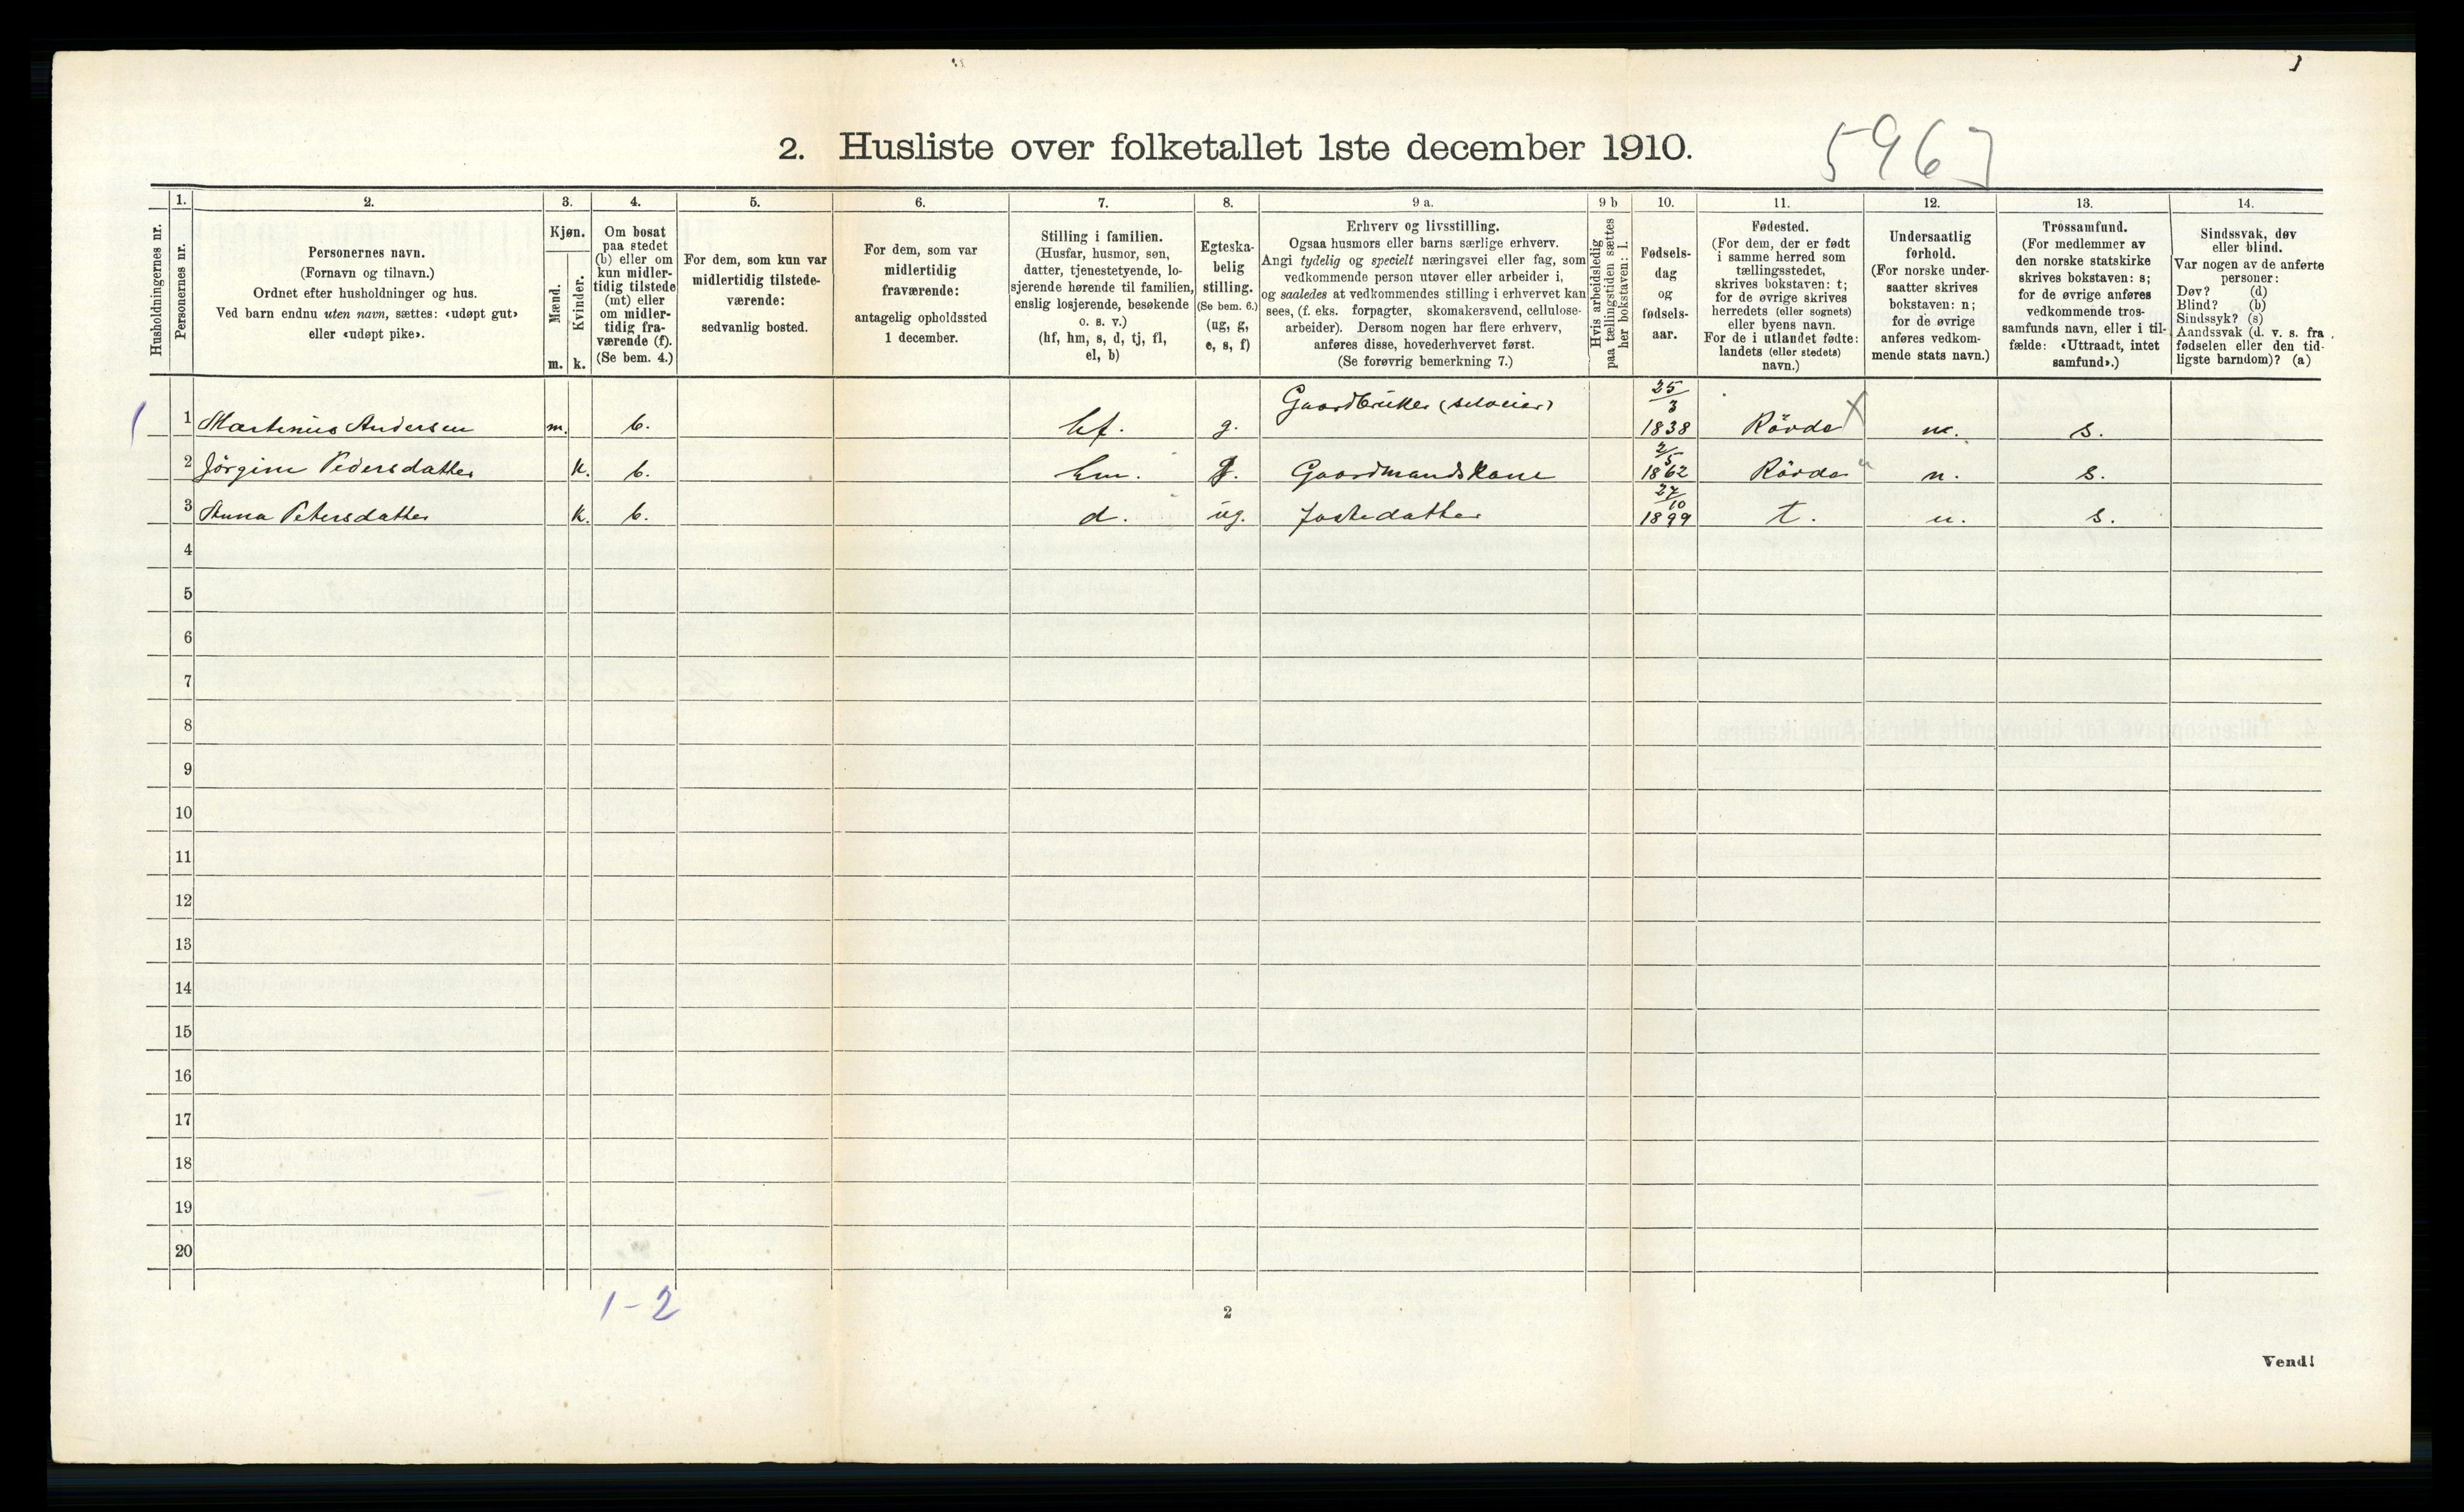 2. Husliste over folketallet 1ste december 1910.
596
Husholdningernes nr.
1.
Personernes nr.
2.
Personernes navn.
(Fornavn og tilnavn.)
Ordnet efter husholdninger og hus.
Ved barn endnu uten navn, sættes: «udøpt gut»
eller «udøpt pike».
3.
Kjøn.
Mænd.
Kvinder.
m. k.
4.
Om bosat
paa stedet
(b) eller om
kun midler-
tidig tilstede
(mt) eller
om midler-
tidig fra-
værende (f).
(Se bem. 4.)
5.
For dem, som kun var
midlertidig tilstede-
værende:
sedvanlig bosted.
6.
For dem, som var
midlertidig
fraværende:
antagelig opholdssted
1 december.
7.
Stilling i familien.
(Husfar, husmor, søn,
datter, tjenestetyende, lo-
sjerende hørende til familien,
enslig losjerende, besøkende
o. s. v.)
(hf, hm, s, d, tj, fl,
el, b)
8.
Egteska-
belig
stilling.
(Se bem. 6.)
(ug, g,
e, s, f)
9 a.
Erhverv og livsstilling.
Ogsaa husmors eller barns særlige erhverv.
Angi tydelig og specielt næringsvei eller fag, som
vedkommende person utøver eller arbeider i,
og saaledes at vedkommendes stilling i erhvervet kan
sees, (f. eks. forpagter, skomakersvend, cellulose-
arbeider). Dersom nogen har flere erhverv,
anføres disse, hovederhvervet først.
(Se forøvrig bemerkning 7.)
9 b
Hvis arbeidsledig
paa tællingstiden sættes
her bokstaven: l.
10.
Fødsels-
dag
og
fødsels-
aar.
11.
Fødested.
(For dem, der er født
i samme herred som
tællingsstedet,
skrives bokstaven: t;
for de øvrige skrives
herredets (eller sognets)
eller byens navn.
For de i utlandet fødte:
landets (eller stedets)
navn.)
12.
Undersaatlig
forhold.
(For norske under-
saatter skrives
bokstaven: n;
for de øvrige
anføres vedkom-
mende stats navn.)
13.
Trossamfund.
(For medlemmer av
den norske statskirke
skrives bokstaven: s;
for de øvrige anføres
vedkommende tros-
samfunds navn, eller i til-
fælde: «Uttraadt, intet
samfund».)
14.
Sindssvak, døv
eller blind.
Var nogen av de anførte
personer:
Døv? (d)
Blind? (b)
Sindssyk? (s)
Aandssvak (d. v. s. fra
fødselen eller den tid-
ligste barndom)? (a)
1 1 Martinus Andersen m. b. hf. g. Gaardbruker (selveier) 25/3 1838 Rövde X n. s.
2 Jörgine Pedersdatter k. b. hm. g. Gaardmandskone 2/5 1862 Rövde n. s.
3 Anna Petersdatter k. b. d. ug. Fostedatter 27/10 1899 t. n. s.
4
5
6
7
8
9
10
11
12
13
14
15
16
17
18
19
20
1-2
2
Vend!